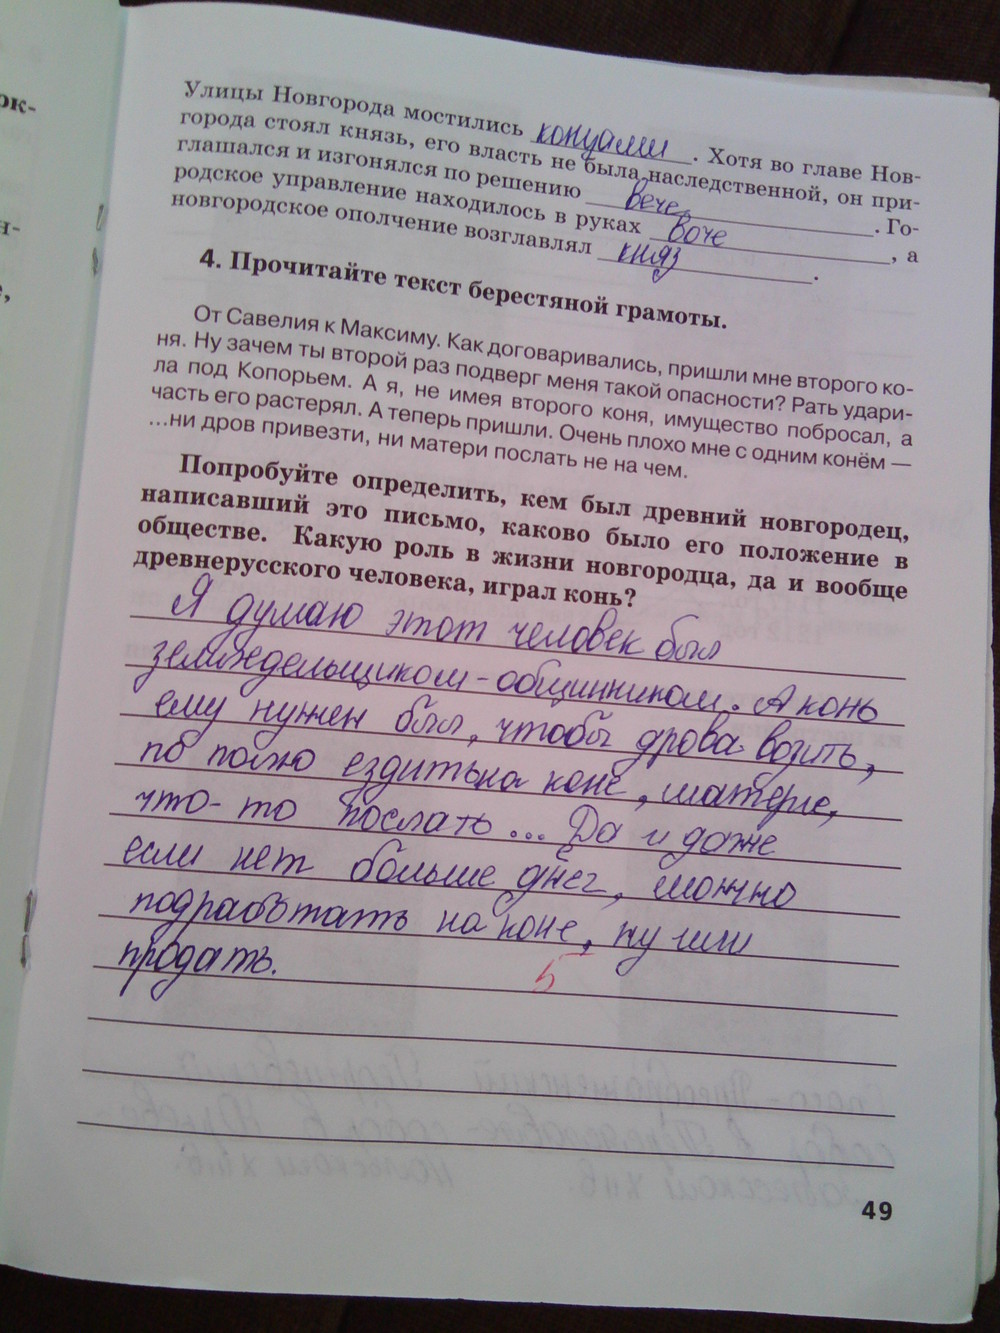 ок-
н-
е,
Улицы Новгорода мостились концами. Хотя во главе Нов-
города стоял князь, его власть не была наследственной, он при-
глашался и изгонялся по решению вече. Го-
родское управление находилось в руках воче, а
новгородское ополчение возглавлял княз.
4. Прочитайте текст берестяной грамоты.
От Савелия к Максиму. Как договаривались, пришли мне второго ко-
ня. Ну зачем ты второй раз подверг меня такой опасности? Рать удари-
ла под Копорьем. А я, не имея второго коня, имущество побросал, а
часть его растерял. А теперь пришли. Очень плохо мне с одним конём —
...ни дров привезти, ни матери послать не на чем.
Попробуйте определить, кем был древний новгородец,
написавший это письмо, каково было его положение в
обществе. Какую роль в жизни новгородца, да и вообще
древнерусского человека, играл конь?
Я думаю этот человек был
земледельщиком-общинником. А конь
ему нужен был, чтобы дрова возить,
по полю ездить на коне, матере,
что-то послать... Да и даже
если нет больше днег, можно
подработать на коне, ну или
продать.
5
49